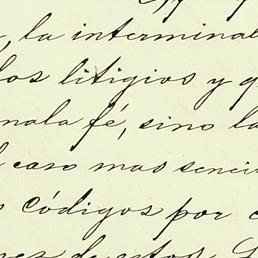 , la interminable
los litigios y q
mala fé, sino la
caso mas senci
códigos por c
de estos. L